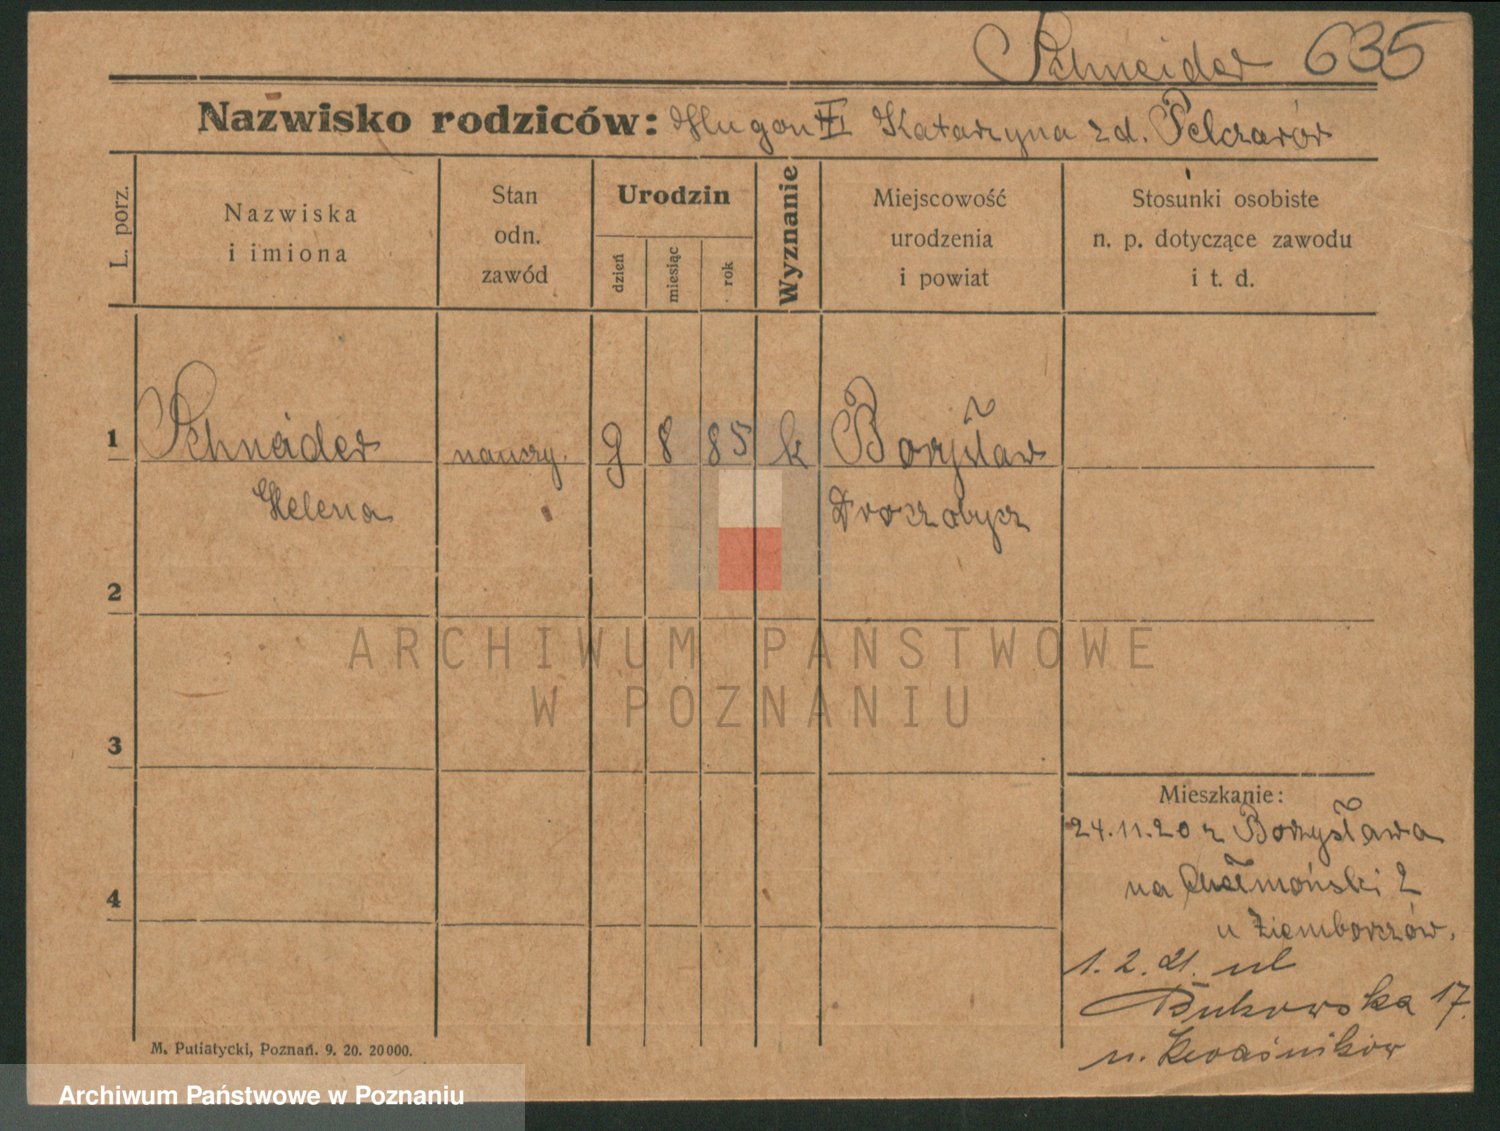 Schneider 635
Nazwisko rodziców: Hugon III Katarzyna z d. Pelczarów
L. porz.
Nazwiska
i imiona
Stan
odn.
zawód
Urodzin
dzień
miesiąc
rok
Wyznanie
Miejscowość
urodzenia
i powiat
Stosunki osobiste
n. p. dotyczące zawodu
i t. d.
1 Schneider nauczy. 9 8 85 k Borysław
Helena Drochobycz
2
3
4
Mieszkanie:
24.11.20 z Borysława
na Chełmoński 2
u Ziemborzów.
1. 2. 21. ul
Bukowska 17.
u. Kwaśników
M. Putiatycki, Poznań. 9. 20. 20000.
ARCHIWUM PAŃSTWOWE
W POZNANIU
Archiwum Państwowe w Poznaniu